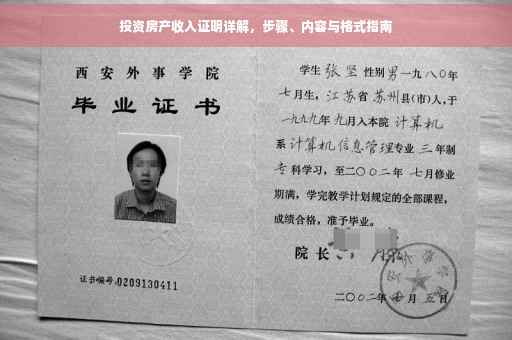 投资房产收入证明详解，步骤、内容与格式指南
西安外事学院
毕业证书
证书编号:0209130411
学生 张坚 性别 男 一九八〇年
七月生，江苏省 苏州 县(市)人，于
一九九九年 九月入本院 计算机
系 计算机信息管理 专业 三 年制
专 科学习，至二〇〇二年 七月修业
期满，学完教学计划规定的全部课程，
成绩合格，准予毕业。
院长
二〇〇二年 月 五日